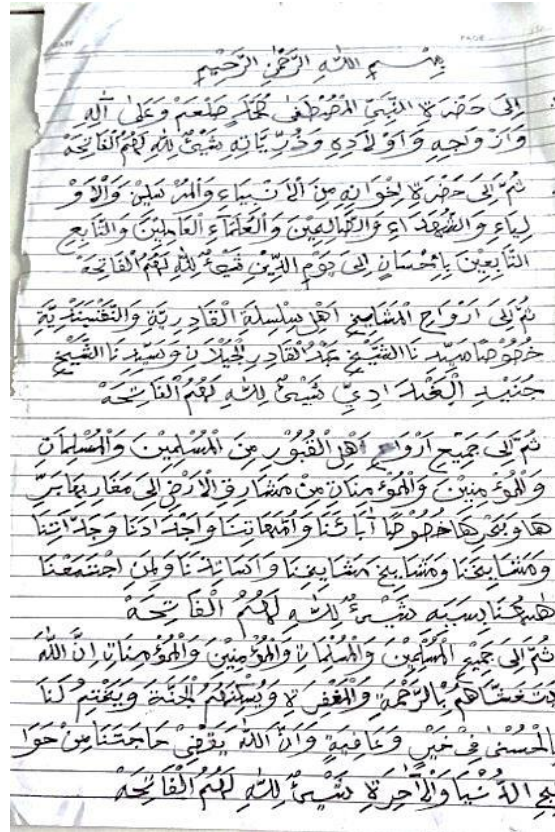 بِسْمِ اللّٰهِ الرَّحْمٰنِ الرَّحِيْمِ
اِلَى حَضْرَةِ النَّبِيِّ الْمُصْطَفٰى مُحَمَّدٍ صلعم وَعَلٰى آلِهِ
وَاَزْوَاجِهِ وَاَوْلَادِهِ وَذُرِّيَّاتِهِ شَيْئٌ لِلّٰهِ لَهُمُ الْفَاتِحَةْ
ثُمَّ اِلَى حَضْرَةِ اِخْوَانِهِ مِنَ الْاَنْبِيَاءِ وَالْمُرْسَلِيْنَ وَالْاَوْ
لِيَاءِ وَالشُّهَدَاءِ وَالصَّالِحِيْنَ وَالْعُلَمَاءِ الْعَامِلِيْنَ وَالتَّابِعِ
التَّابِعِيْنَ بِاِحْسَانٍ اِلَى يَوْمِ الدِّيْنِ شَيْئٌ لِلّٰهِ لَهُمُ الْفَاتِحَةْ
ثُمَّ اِلَى اَرْوَاحِ الْمَشَايِخِ اَهْلِ سِلْسِلَةِ الْقَادِرِيَّةِ وَالنَّقْشَبَنْدِيَّةِ
خُصُوْصًا سَيِّدِنَا الشَّيْخِ عَبْدُ الْقَادِرِ الْجَيْلَانِ وَسَيِّدِنَا الشَّيْخِ
جُنَيْدِ الْبَغْدَادِيِّ شَيْئٌ لِلّٰهِ لَهُمُ الْفَاتِحَةْ
ثُمَّ اِلَى جَمِيْعِ اَرْوَاحِ اَهْلِ الْقُبُوْرِ مِنَ الْمُسْلِمِيْنَ وَالْمُسْلِمَاتِ
وَالْمُؤْمِنِيْنَ وَالْمُؤْمِنَاتِ مِنْ مَشَارِقِ الْاَرْضِ اِلَى مَغَارِبِهَا بَرِّ
هَا وَبَحْرِهَا خُصُوْصًا آبَائَنَا وَاُمَّهَاتِنَا وَاَجْدَادَنَا وَجَدَّاتِنَا
وَمَشَايِخَنَا وَمَشَايِخِ مَشَايِخِنَا وَاَسَاتِذَنَا وَلِمَنِ اجْتَمَعْنَا
هٰهُنَا بِسَبَبِهِ شَيْئٌ لِلّٰهِ لَهُمُ الْفَاتِحَةْ
ثُمَّ اِلَى جَمِيْعِ الْمُسْلِمِيْنَ وَالْمُسْلِمَاتِ وَالْمُؤْمِنِيْنَ وَالْمُؤْمِنَاتِ اِنَّ اللّٰهَ
يَتَغَشَّاهُمْ بِالرَّحْمَةِ وَالْمَغْفِرَةِ وَيُسْكِنُهُمُ الْجَنَّةَ وَيَخْتِمُ لَنَا
بِالْحُسْنٰى فِيْ خَيْرٍ وَعَافِيَةٍ وَاَنَّ اللّٰهَ يَقْضِيْ حَاجَتَنَا مِنْ حَوَا
ئِجِ الدُّنْيَا وَالْاٰخِرَةِ شَيْئٌ لِلّٰهِ لَهُمُ الْفَاتِحَةْ